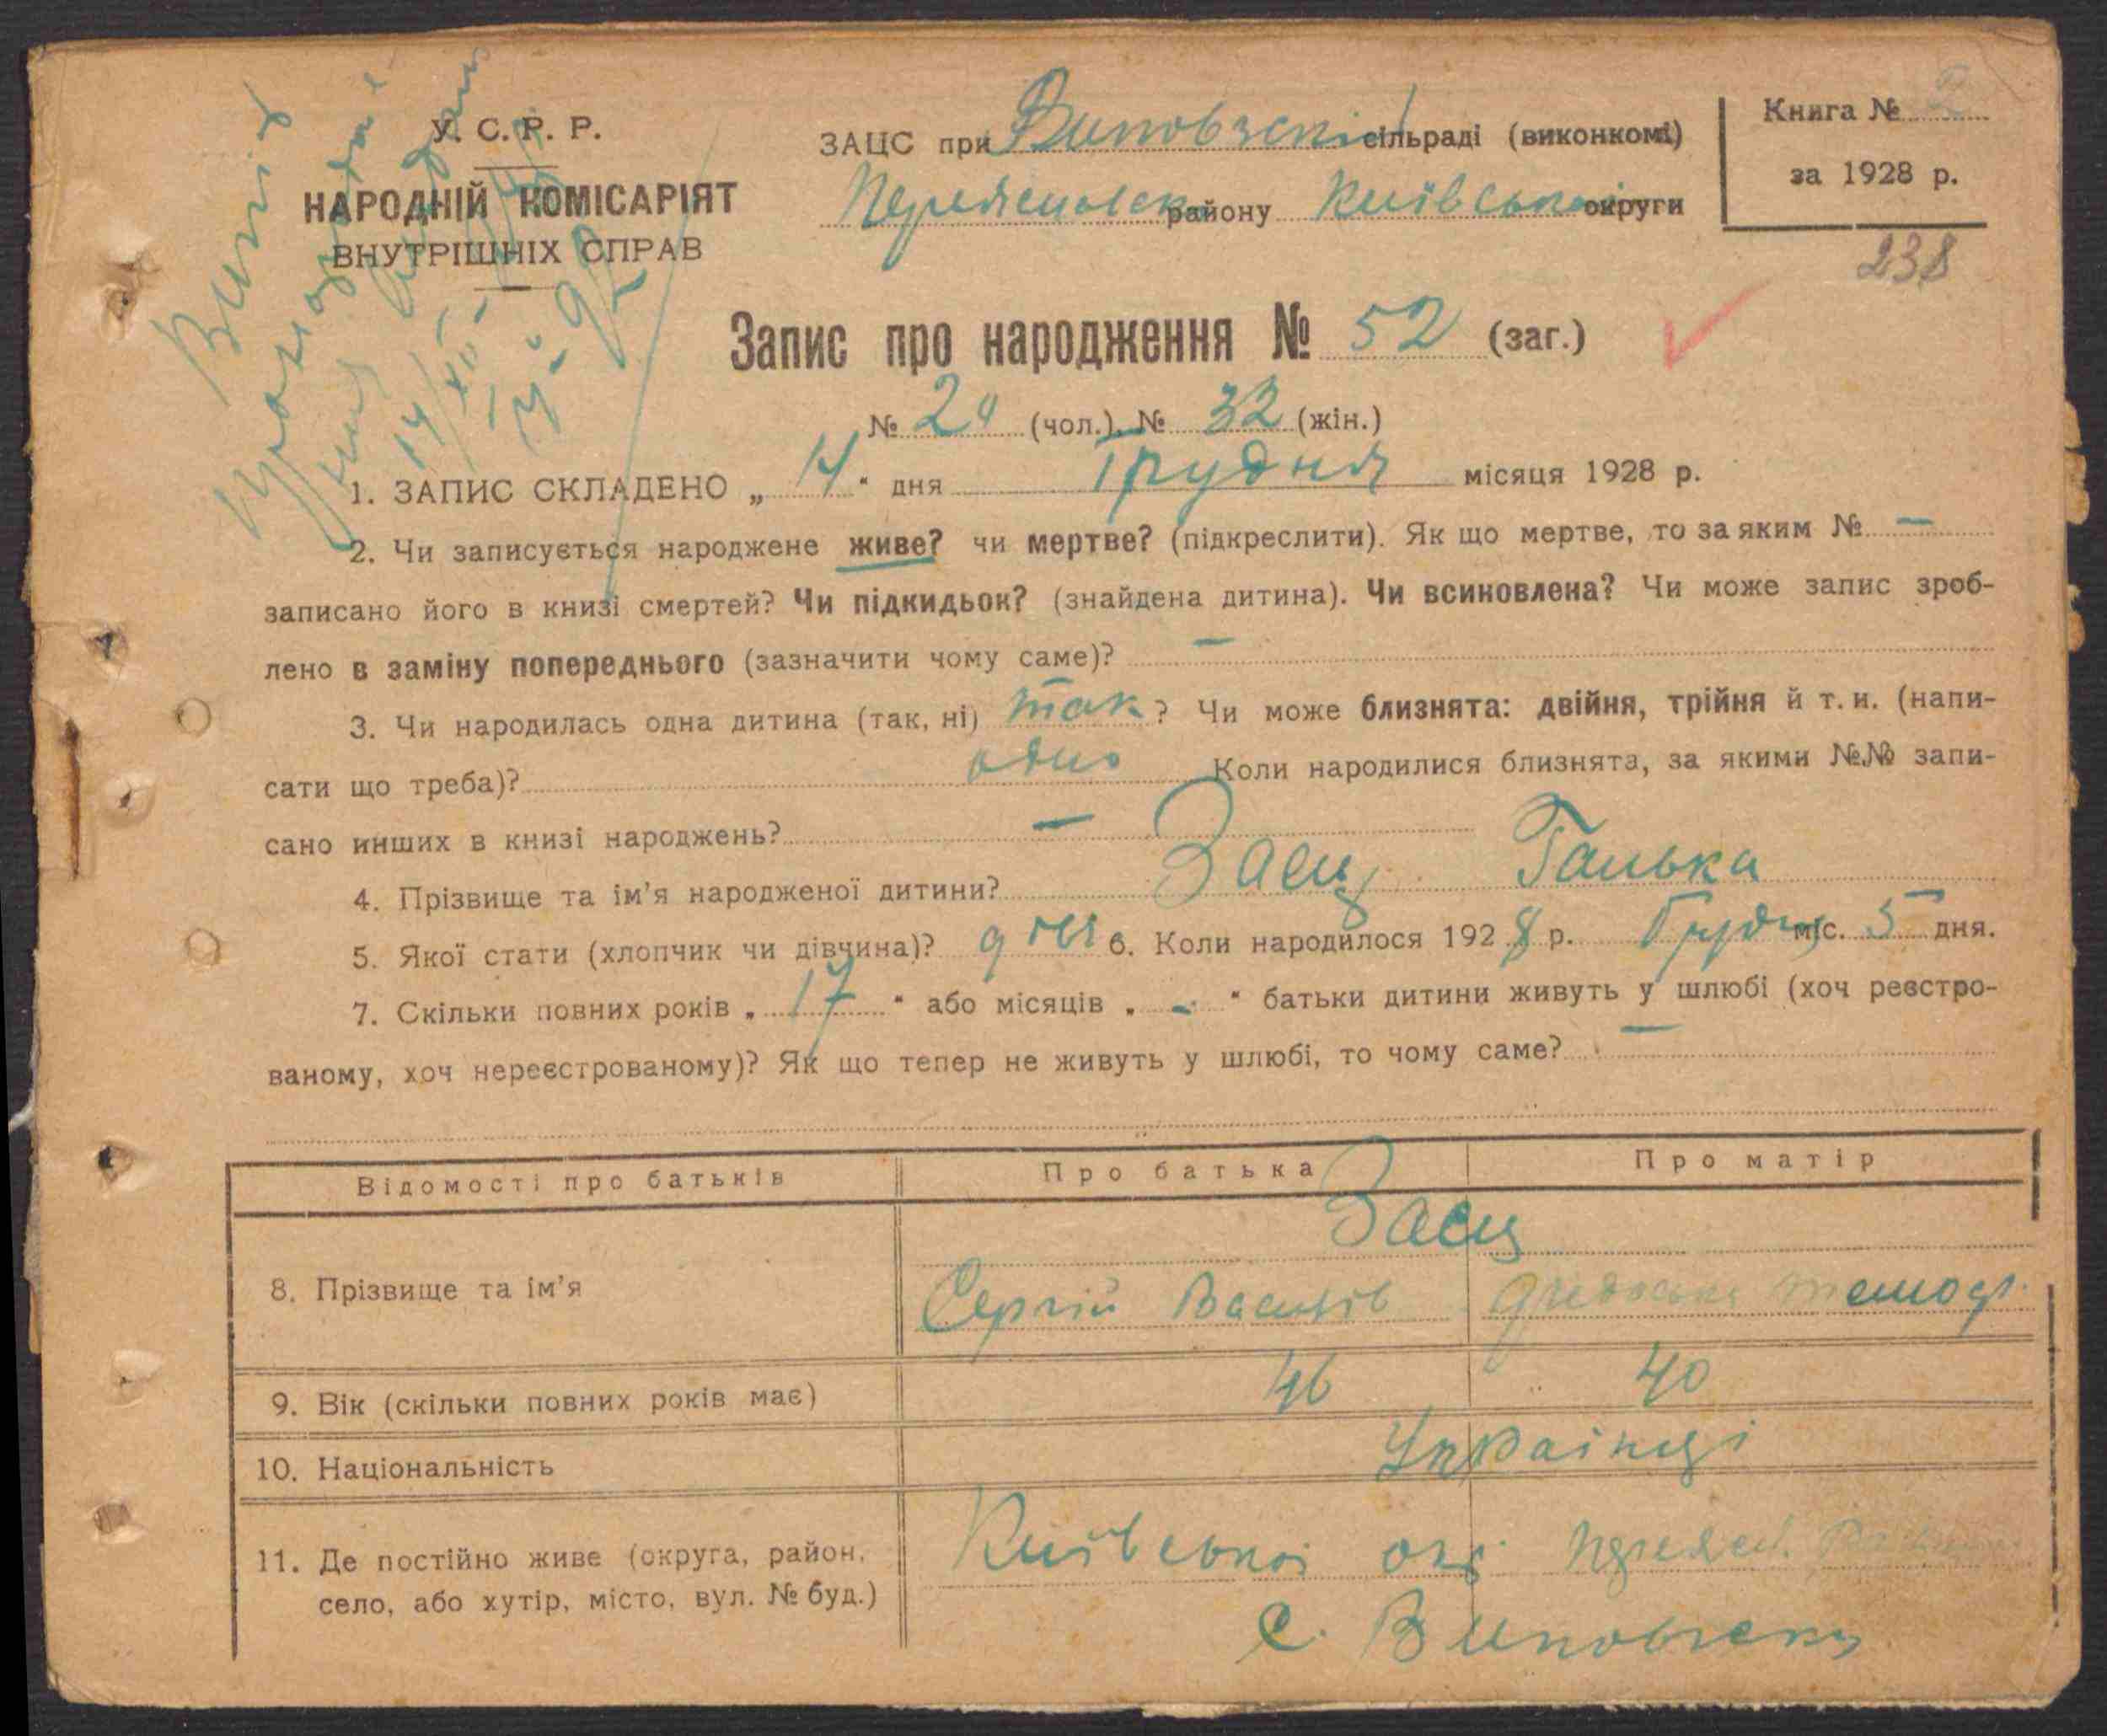 У. С. Р. Р.
НАРОДНІЙ КОМІСАРІЯТ
ВНУТРІШНІХ СПРАВ
ЗАЦС при сільраді (виконкомі)
району Київської округи
Книга № 2
за 1928 р.
238
Запис про народження № 52 (заг.)
№ 20 (чол.). № 32 (жін.)
1. ЗАПИС СКЛАДЕНО „ 14 “ дня Грудня місяця 1928 р.
2. Чи записується народжене живе? чи мертве? (підкреслити). Як що мертве, то за яким № —
записано його в книзі смертей? Чи підкидьок? (знайдена дитина). Чи всиновлена? Чи може запис зроб-
лено в заміну попереднього (зазначити чому саме)? —
3. Чи народилась одна дитина (так, ні) так ? Чи може близнята: двійня, трійня й т. и. (напи-
сати що треба)? одно Коли народилися близнята, за якими №№ запи-
сано инших в книзі народжень? —
4. Прізвище та ім’я народженої дитини? Заєць Галька
5. Якої стати (хлопчик чи дівчина)? 6. Коли народилося 192 8 р. Грудня міс. 5 дня.
7. Скільки повних років „ 17 “ або місяців „ - “ батьки дитини живуть у шлюбі (хоч реєстро-
ваному, хоч нереєстрованому)? Як що тепер не живуть у шлюбі, то чому саме? —
Відомості про батьків Про батька Про матір
Заєць
8. Прізвище та ім’я Сергій Василів
9. Вік (скільки повних років має) 46 40
10. Національність Українці
11. Де постійно живе (округа, район, Київської окр.
село, або хутір, місто, вул. № буд.) с.